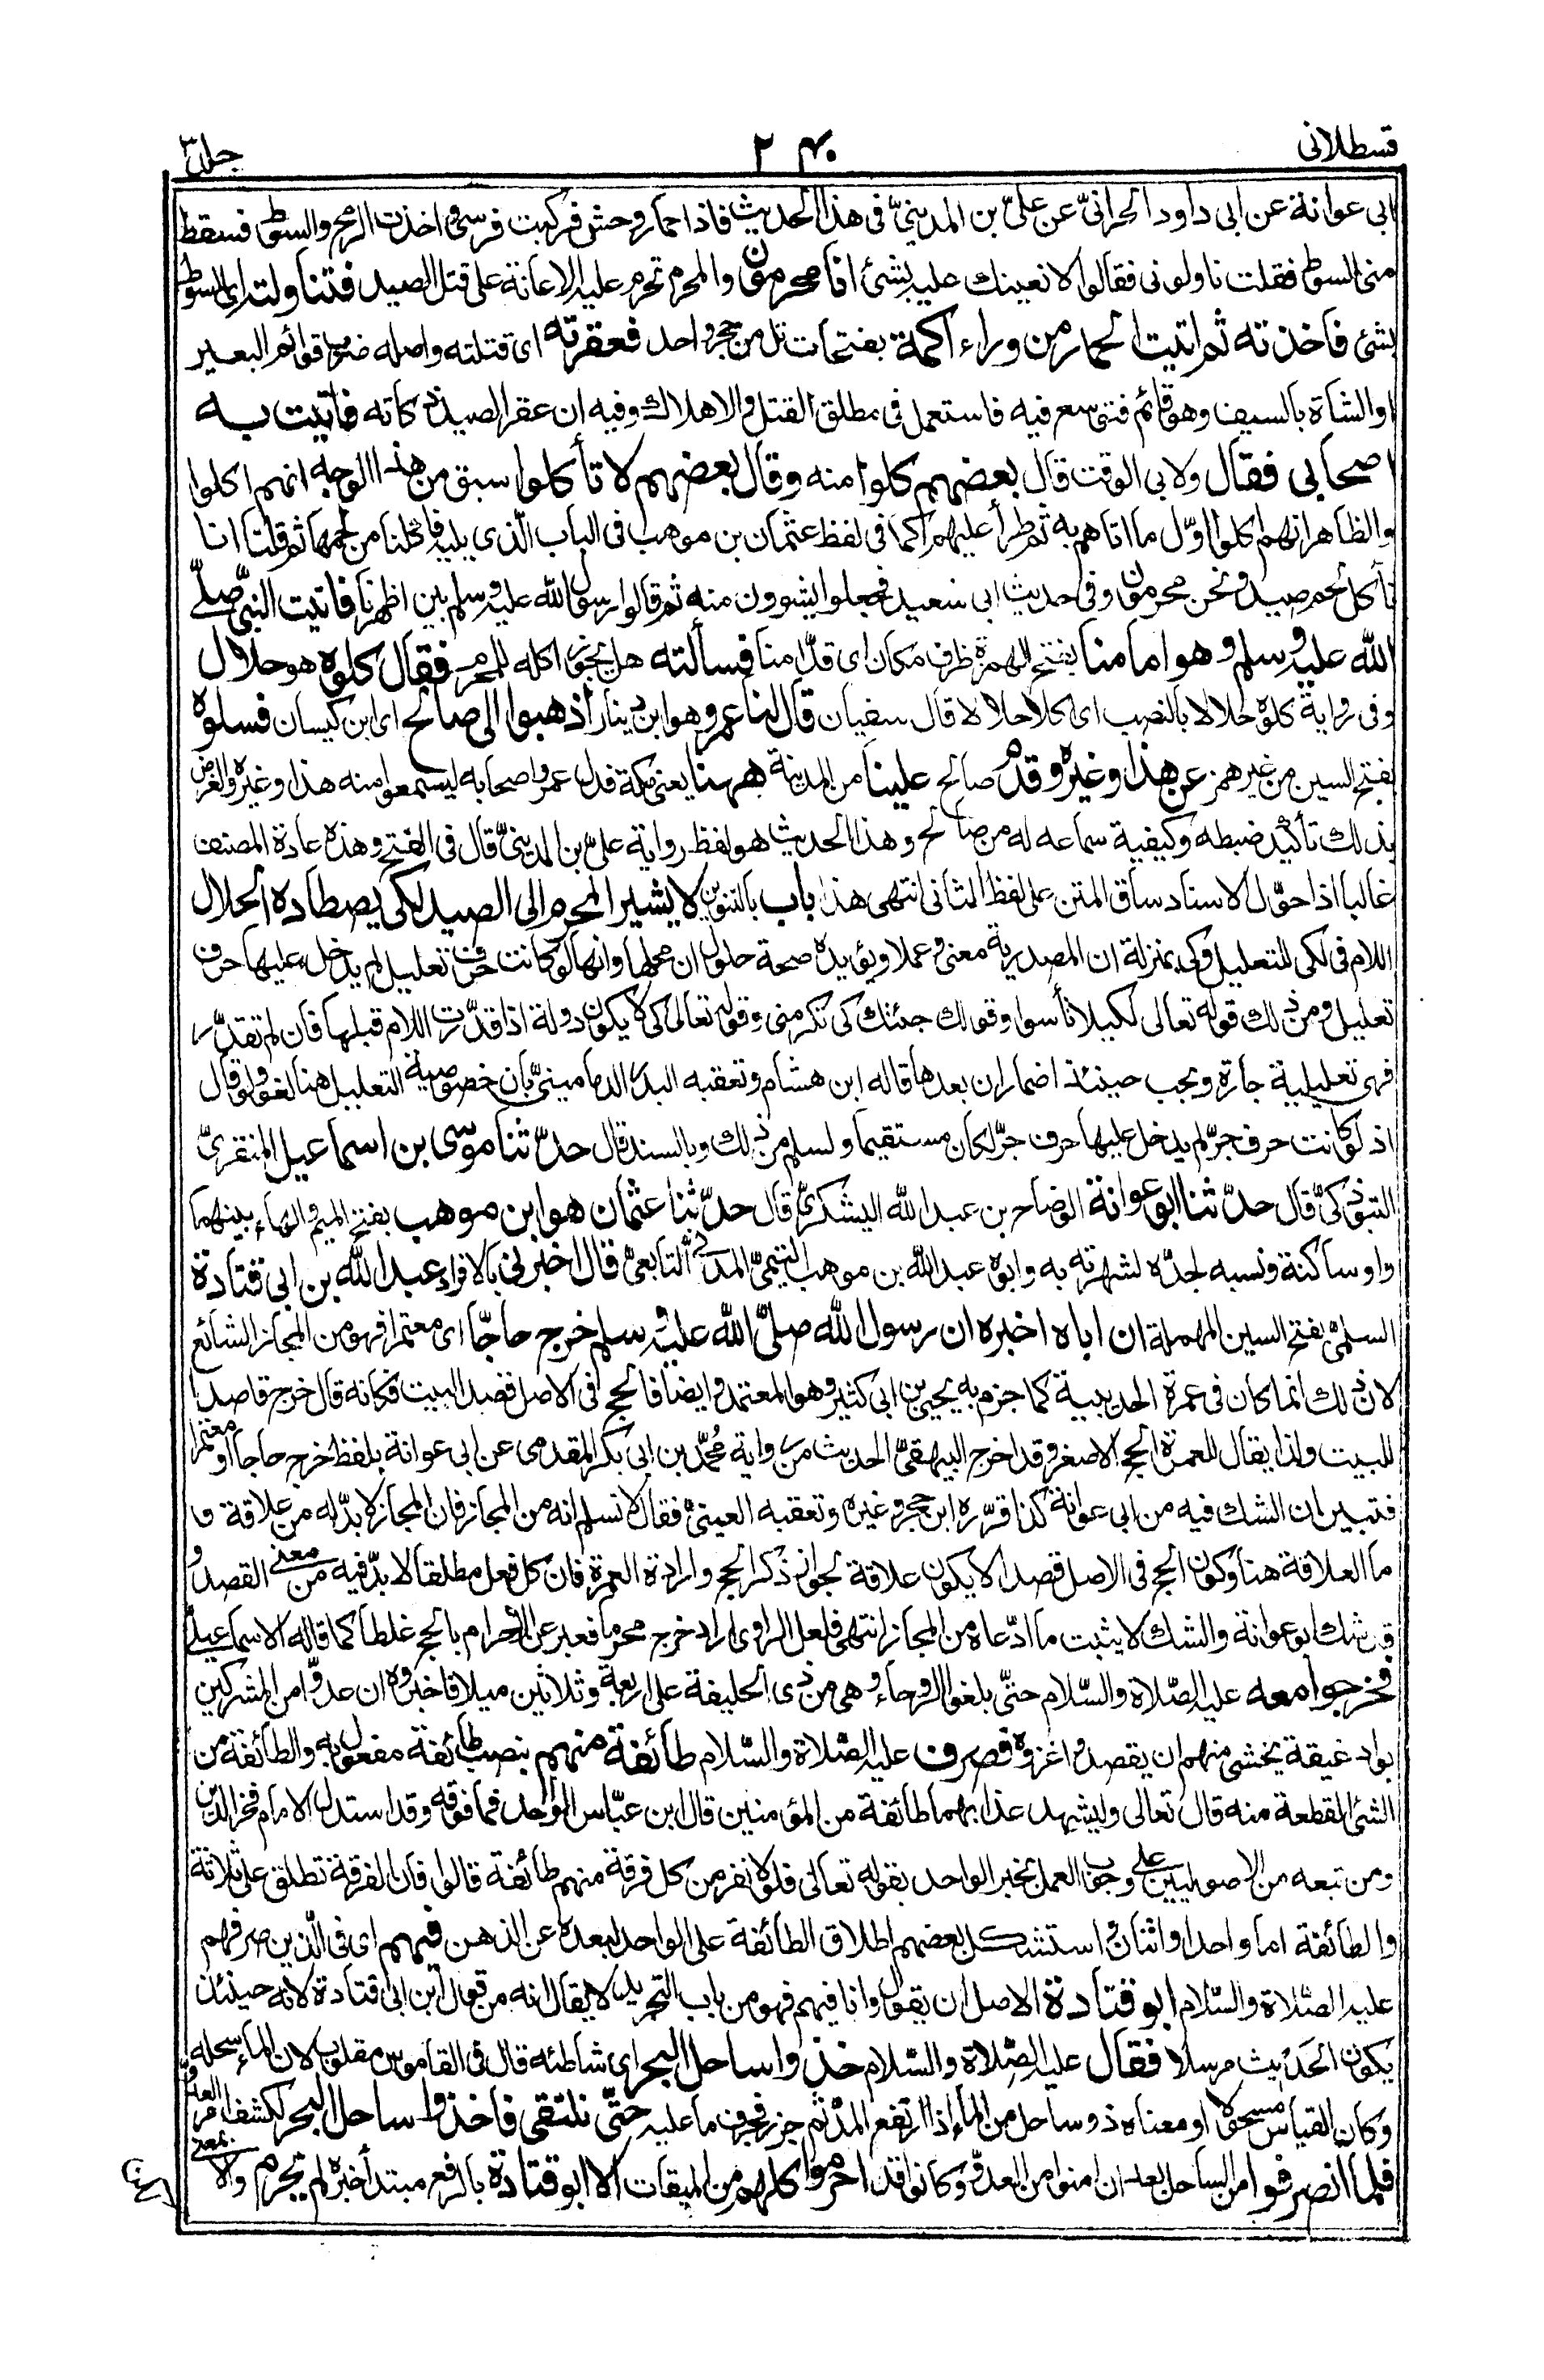 قسطلانى
٢٠٤
جلد ٣
ابى عوانة عن ابى داود الحرانىّ عن علىّ بن المدينىّ فى هذا الحديث فاذا حمار وحش فركبت فرسى واخذت الرمح والسوط فسقط
منى السوط فقلت ناولونى فقالوا لا نعينك عليه بشئ انا محرمون والمحرم تحرم عليه الاعانة على قتل الصيد فتناولته اى السوط
بشئ فاخذته ثم اتيت الحمار من وراء اكمة بفتحات تل من حجر واحد فعقرته اى قتلته واصله ضرب قوائم البعير
او الشاة بالسيف وهو قائم فتوسع فيه فاستعمل فى مطلق القتل والاهلاك وفيه ان عقر الصيد ذكاته فاتيت به
اصحابى فقال ولابى الوقت قال بعضهم كلوا منه وقال بعضهم لا تأكلوا سبق من هذا الوجه انهم اكلوا
والظاهر انهم اكلوا اوّل ما اتاهم به ثم طرأ عليهم كما فى لفظ عثمان بن موهب فى الباب الّذى يليه فاكلنا من لحمها ثم قلنا انا
نأكل لحم صيد ونحن محرمون وفى حديث ابى سعيد فجعلوا يشوون منه ثم قالوا رسول الله عليه وسلم بين اظهرنا فاتيت النبىّ صلّى
الله عليه وسلم وهو امامنا بفتح الهمزة ظرف مكان اى قدّامنا فسألته هل يجوز اكله للمحرم فقال كلوه هو حلال
وفى رواية كلوه حلالا بالنصب اى كلا حلالا قال سفيان قال لنا عمرو هو ابن دينار اذهبوا الى صالح اى ابن كيسان فسلوه
بفتح السين من غير همز عن هذا وغيره وقدم صالح علينا من المدينة ههنا يعنى مكة فدل عمرو اصحابه ليسمعوا منه هذا وغيره والغرض
بذلك تأكيد ضبطه وكيفية سماعه له من صالح وهذا الحديث هو لفظ رواية علىّ بن المدينىّ قال فى الفتح وهذه عادة المصنف
غالبا اذا حوّل الاسناد ساق المتن على لفظ الثانى انتهى هذا باب بالتنوين لا يشير المحرم الى الصيد لكى يصطاده الحلال
اللام فى لكى للتعليل وكى بمنزلة ان المصدرية معنى وعملا ويؤيده صحة حلول ان محلها وانها لو كانت حرف تعليل لم يدخل عليها حرف
تعليل ومن ذلك قوله تعالى لكيلا تأسوا وقولك جئتك كى تكرمنى وقوله تعالى كى لا يكون دولة اذا قدّرت اللام قبلها فان لم تقدّر
فهى تعليلية جارة ويجب حينئذ اضمار ان بعدها قاله ابن هشام وتعقبه البدر الدمامينىّ بان خصوصية التعليل هنا لغو ولو قال
اذ لو كانت حرف جرّ لم يدخل عليها حرف جرّ لكان مستقيما ولسلم من ذلك وبالسند قال حدّثنا موسى بن اسماعيل المنقرىّ
التبوذكىّ قال حدّثنا ابو عوانة الوضاح بن عبد الله اليشكرىّ قال حدّثنا عثمان هو ابن موهب بفتح الميم والهاء بينهما
واو ساكنة ونسبه لجدّه لشهرته به وابوه عبد الله بن موهب التيمىّ المدنىّ التابعىّ قال اخبرنى بالافراد عبد الله بن ابى قتادة
السلمىّ بفتح السين المهملة ان اباه اخبره ان رسول الله صلّى الله عليه وسلم خرج حاجّا اى معتمرا فهو من المجاز الشائع
لان ذلك انما كان فى عمرة الحديبية كما جزم به يحيى بن ابى كثير وهو المعتمد وايضا فالحج فى الاصل قصد البيت فكانه قال خرج قاصدا
للبيت ولذا يقال للعمرة الحج الاصغر وقد اخرج البيهقىّ الحديث من رواية محمّد بن ابى بكر المقدمى عن ابى عوانة بلفظ خرج حاجا او معتمرا
فتبين ان الشك فيه من ابى عوانة كذا قرّره ابن حجر وغيره وتعقبه العينىّ فقال لا نسلم انه من المجاز فان المجاز لا بدّ له من علاقة و
ما العلاقة هنا وكون الحج فى الاصل قصدا لا يكون علاقة لجواز ذكر الحج وارادة العمرة فان كل فعل مطلقا لا بدّ فيه من معنى القصد و
قد شك ابو عوانة والشك لا يثبت ما ادّعاه من المجاز انتهى فلعل الراوى اراد خرج محرما فعبر عن الاحرام بالحج غلطا كما قاله الاسماعيلىّ
فخرجوا معه عليه الصّلاة والسّلام حتّى بلغوا الروحاء وهى من ذى الحليفة على اربعة وثلاثين ميلا فاخبروه ان عدوّا من المشركين
بوادى غيقة يخشى منهم ان يقصدوا غزوه فصرف عليه الصّلاة والسّلام طائفة منهم بنصب طائفة مفعول به والطائفة من
الشئ القطعة منه قال تعالى وليشهد عذابهما طائفة من المؤمنين قال ابن عبّاس الواحد فما فوقه وقد استدل الامام فخر الدين
ومن تبعه من الاصوليين على وجوب العمل بخبر الواحد بقوله تعالى فلولا نفر من كل فرقة منهم طائفة قالوا فان الفرقة تطلق على ثلاثة
والطائفة اما واحد او اثنان واستشكل بعضهم اطلاق الطائفة على الواحد لبعده عن الذهن فيهم اى فى الّذين صرفهم
عليه الصّلاة والسّلام ابو قتادة الاصل ان يقول وانا فيهم فهو من باب التجريد لا يقال انه من قول ابن ابى قتادة لانه حينئذ
يكون الحديث مرسلا فقال عليه الصّلاة والسّلام خذوا ساحل البحر اى شاطئه قال فى القاموس مقلوب لان الماء سحله
وكان القياس مسحولا او معناه ذو ساحل من الماء اذا ارتفع المدّ ثم جزر فجرف ما عليه حتّى نلتقى فاخذوا ساحل البحر لكشف امر العدو
فلما انصرفوا من الساحل بعد ان امنوا من العدوّ وكانوا قد احرموا كلهم من الميقات الا ابو قتادة بالرفع مبتدأ خبره لم يحرم والا بمعنى